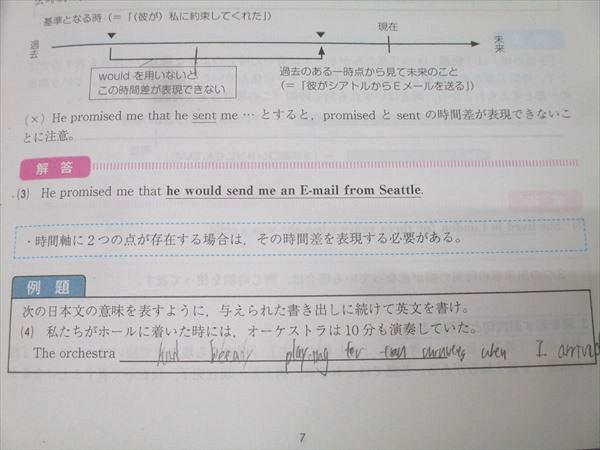 基準となる時(=「(彼が)私に約束してくれた」)
現在
過去
未来
would を用いないと
この時間差が表現できない
過去のある一時点から見て未来のこと
(=「彼がシアトルからEメールを送る」)
(×) He promised me that he sent me … とすると, promised と sent の時間差が表現できないこ
とに注意。
解答
(3) He promised me that he would send me an E-mail from Seattle.
・時間軸に2つの点が存在する場合は, その時間差を表現する必要がある。
例題
次の日本文の意味を表すように, 与えられた書き出しに続けて英文を書け。
(4) 私たちがホールに着いた時には, オーケストラは10分も演奏していた。
The orchestra playing for when I
7